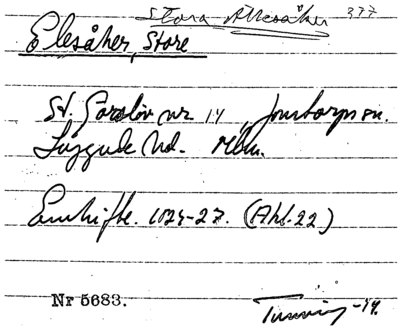 Stora Allesåker 377
Elesåker, Store
St. Farslöv nr 14, Jonstorps sn.
Luggude hd. Mlm.
Enskifte. 1824-27. (Akt. 22)
Nr 5683. Tunving -44.